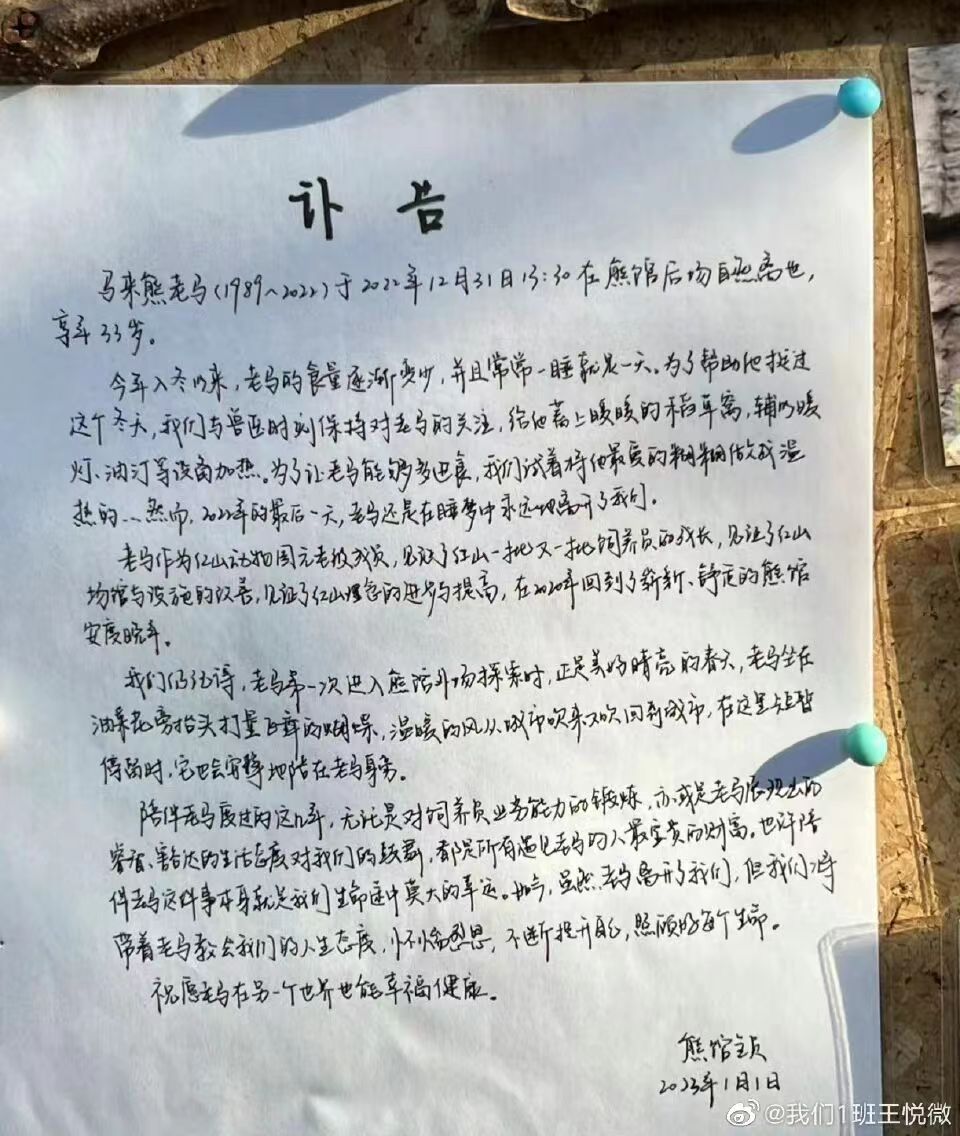 讣告
马来熊老马(1989~2022)于2022年12月31日13:30在熊馆后场自然离世,
享年33岁。
今年入冬以来,老马的食量逐渐变少,并且常常一睡就是一天。为了帮助他挨过
这个冬天,我们与兽医时刻保持对老马的关注,给他蓄上暖暖的稻草窝,辅以暖
灯、油汀等设备加热。为了让老马能够多进食,我们试着将他最爱的糊糊做成温
热的...然而,2022年的最后一天,老马还是在睡梦中永远地离开了我们。
老马作为红山动物园元老级成员,见证了红山一批又一批饲养员的成长,见证了红山
场馆与设施的改善,见证了红山理念的进步与提高,在2020年回到了崭新、舒适的熊馆
安度晚年。
我们仍记得,老马第一次进入熊馆外场探索时,正是美好晴亮的春天,老马坐在
油菜花旁抬头打量飞舞的蝴蝶,温暖的风从城市吹来又吹回到城市,在这里短暂
停留时,它也会安静地陪在老马身旁。
陪伴老马度过的这几年,无论是对饲养员业务能力的锻炼,亦或是老马展现出的
睿智、豁达的生活态度对我们的鼓舞,都是所有遇见老马的人最宝贵的财富。也许陪
伴老马这件事本身就是我们生命途中莫大的幸运。如今,虽然老马离开了我们,但我们将
带着老马教会我们的人生态度,怀念思,不断提升自己,照顾好每个生命。
祝愿老马在另一个世界也能幸福健康。
熊馆全员
2023年1月1日
@我们1班王悦微